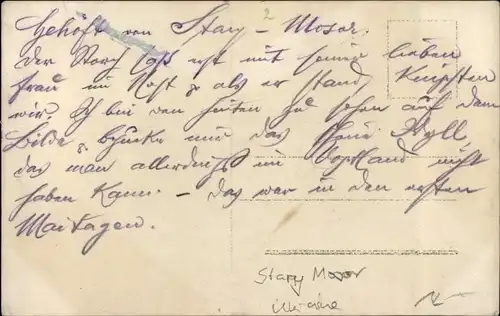 Gehöft von Stary-Mosor.
2
Der Storch saß erst mit seine lieben
Frau im Nest & als er stand, knipsten
wir. Ich bei den Leuten zu sehen auf dem
Bilde & nur das Idyll
das man allerdings im Vogtland nicht
haben kann. – Das war in den ersten
Maitagen.
Stary Mosor
Ukraine